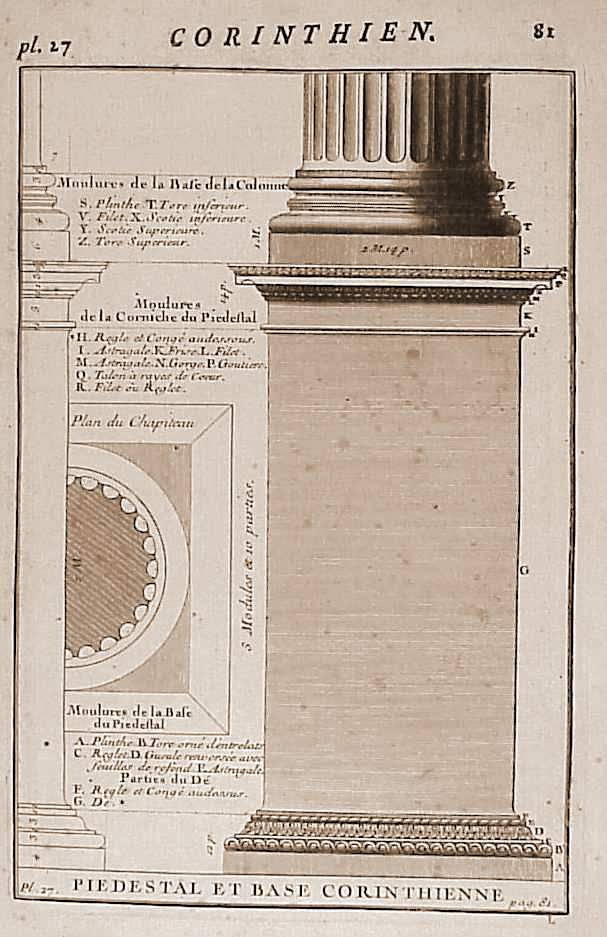 pl. 27 CORINTHIEN. 81
Moulures de la Base de la Colonne
S. Plinthe T. Tore inferieur.
V. Filet. X. Scotie inferieure.
Y. Scotie Superieure.
Z. Tore Superieur.
Z
T
1 M.
2 M. 14 p.
S
14 p.
Moulures
de la Corniche du Piedestal
K
H. Regle et Congé audessous.
I. Astragale. K. Frise. L. Filet.
M. Astragale. N. Gorge. P. Goutiere.
Q. Talon à rayes de Coeur.
R. Filet ou Reglet.
Plan du Chapiteau
3 Modules & 10 parties.
G
Moulures de la Base
du Piedestal
A. Plinthe B. Tore orné d'entrelats
C. Reglet. D. Gueule renversée avec
feuilles de refend. E. Astragale.
Parties du Dé
F. Regle et Congé audessus.
G. Dé.
D
B
12 p.
A
Pl. 27. PIEDESTAL ET BASE CORINTHIENNE pag. 81.
L